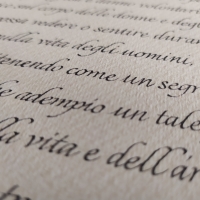 corpo delle donne e deg
vedere o sentire dura
lla vita degli uomini,
tenendo come un segr
e adempio un tale
la vita e dell'ar